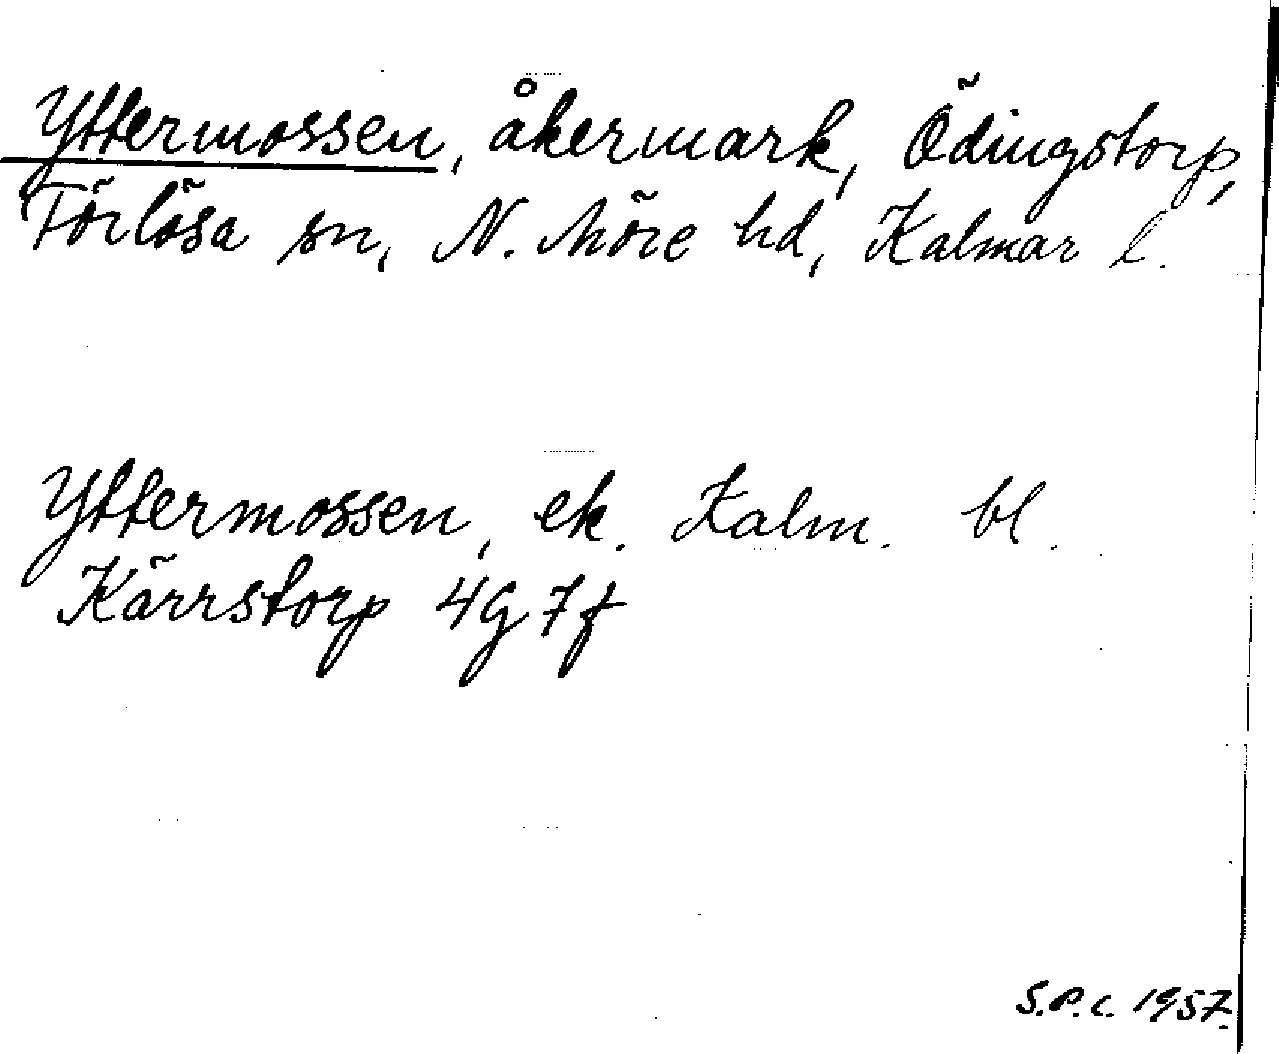 Yttermossen, åkermark, Ödingstorp,
Förlösa sn, N. Möre hd, Kalmar l.
Yttermossen, ek. Kalm. bl.
Kärrstorp 4G7f
S.P.c. 1957.